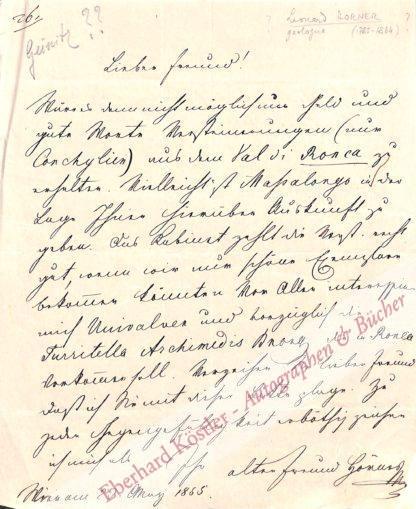 26/
Geinitz ??
? Leonard HORNER ?
geologue (1785-1864)
Lieber Freund!
Wäre es denn nicht möglich um Geld und
gute Worte Versteinerungen (nur
Conchylien) aus dem Val di Ronca zu
erhalten. Vielleicht ist Massalongo in der
Lage Ihnen hierüber Auskunft zu
geben. Das Kabinet zahlt die Verst. recht
gut, wenn wir nur schöne Exemplare
bekommen könnten Vor Allen
mich Univalven und vorzüglich die
Turritella Archimedis Brong. die in Ronca
vorkommen soll. Verzeihen Sie lieber Freund
daß ich Sie mit dieser plage. Zu
jeder Gegengefälligkeit erbötig zeichne
ich mich als Ihr alter Freund Hörnes
Wien am May 1855
Eberhard Köstler - Autographen & Bücher